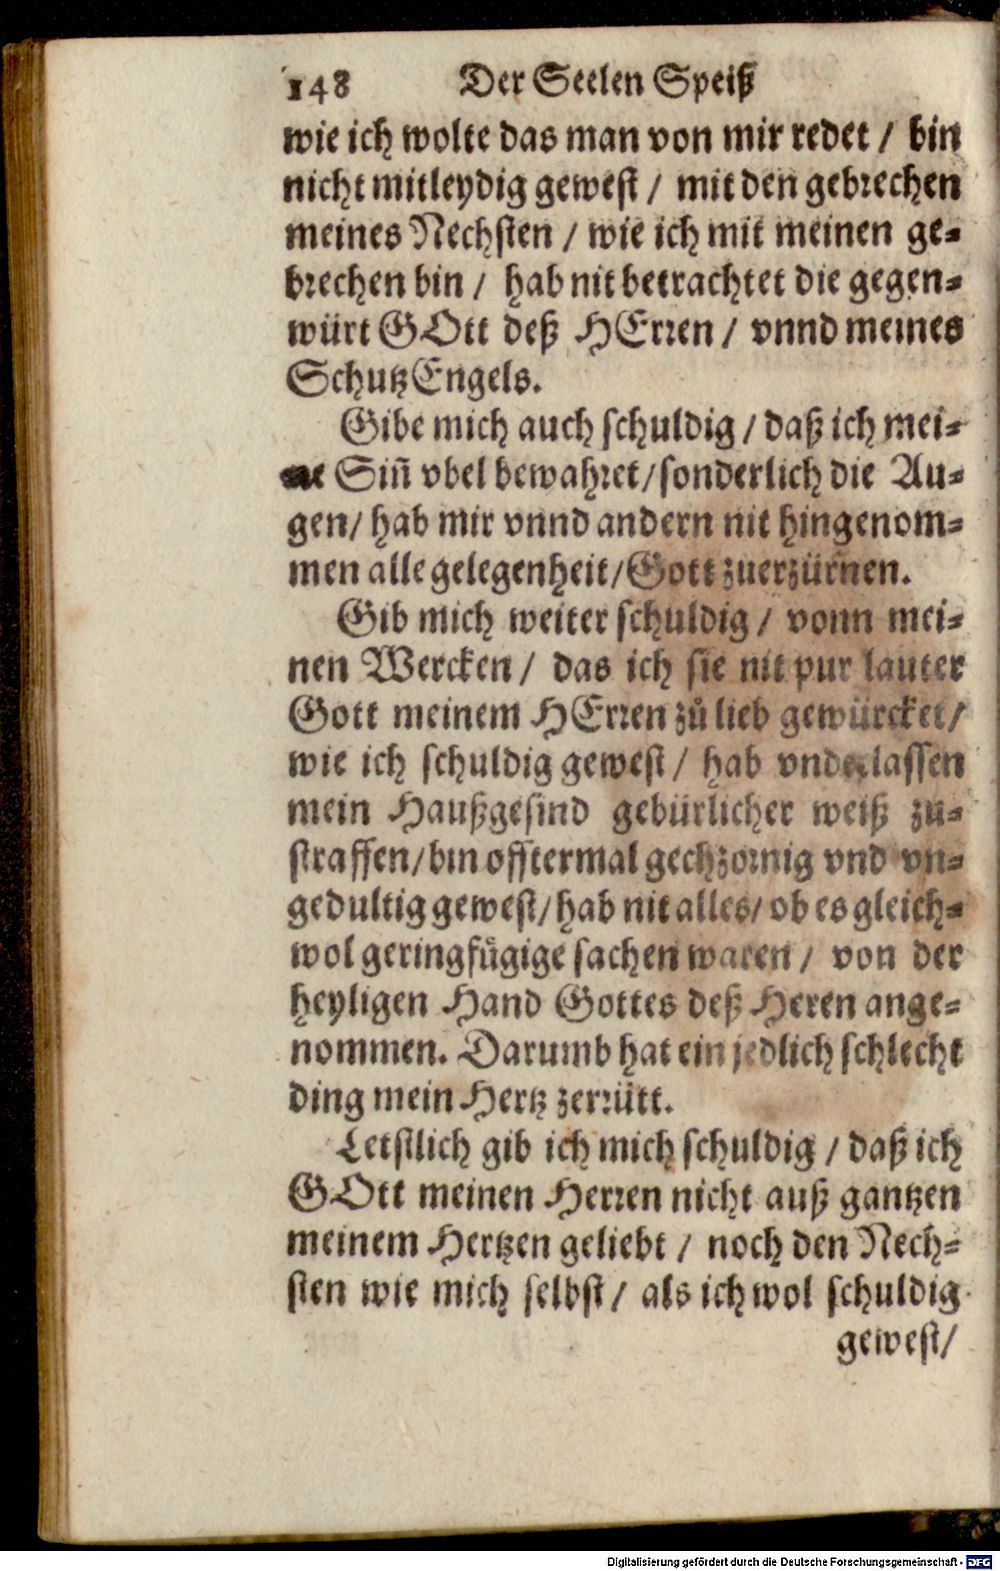 148 Der Seelen Speiß
wie ich wolte das man von mir redet / bin
nicht mitleydig gewest / mit den gebrechen
meines Nechsten / wie ich mit meinen ge-
brechen bin / hab nit betrachtet die gegen-
würt GOtt deß HErren / vnnd meines
SchutzEngels.
Gibe mich auch schuldig / daß ich mei-
ne Siñ vbel bewahret / sonderlich die Au-
gen / hab mir vnnd andern nit hingenom-
men alle gelegenheit / Gott zuerzürnen.
Gib mich weiter schuldig / vonn mei-
nen Wercken / das ich sie nit pur lauter
Gott meinem HErren zů lieb gewürcket /
wie ich schuldig gewest / hab vnderlassen
mein Haußgesind gebürlicher weiß zu-
straffen / bin offtermal gechzornig vnd vn-
gedultig gewest / hab nit alles / ob es gleich-
wol geringfügige sachen waren / von der
heyligen Hand Gottes deß Heren ange-
nommen. Darumb hat ein jedlich schlecht
ding mein Hertz zerrütt.
Letstlich gib ich mich schuldig / daß ich
GOtt meinen Herren nicht auß gantzen
meinem Hertzen geliebt / noch den Nech-
sten wie mich selbst / als ich wol schuldig
gewest /
Digitalisierung gefördert durch die Deutsche Forschungsgemeinschaft - DFG